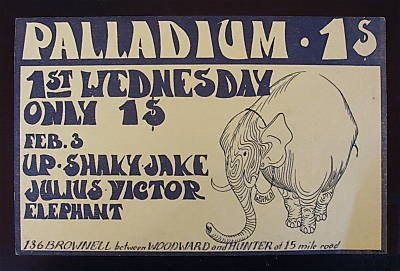 PALLADIUM · 1$
1ST WEDNESDAY
ONLY 1$
FEB. 3
UP · SHAKY JAKE
JULIUS VICTOR
ELEPHANT
136 BROWNELL between WOODWARD and HUNTER at 15 mile road